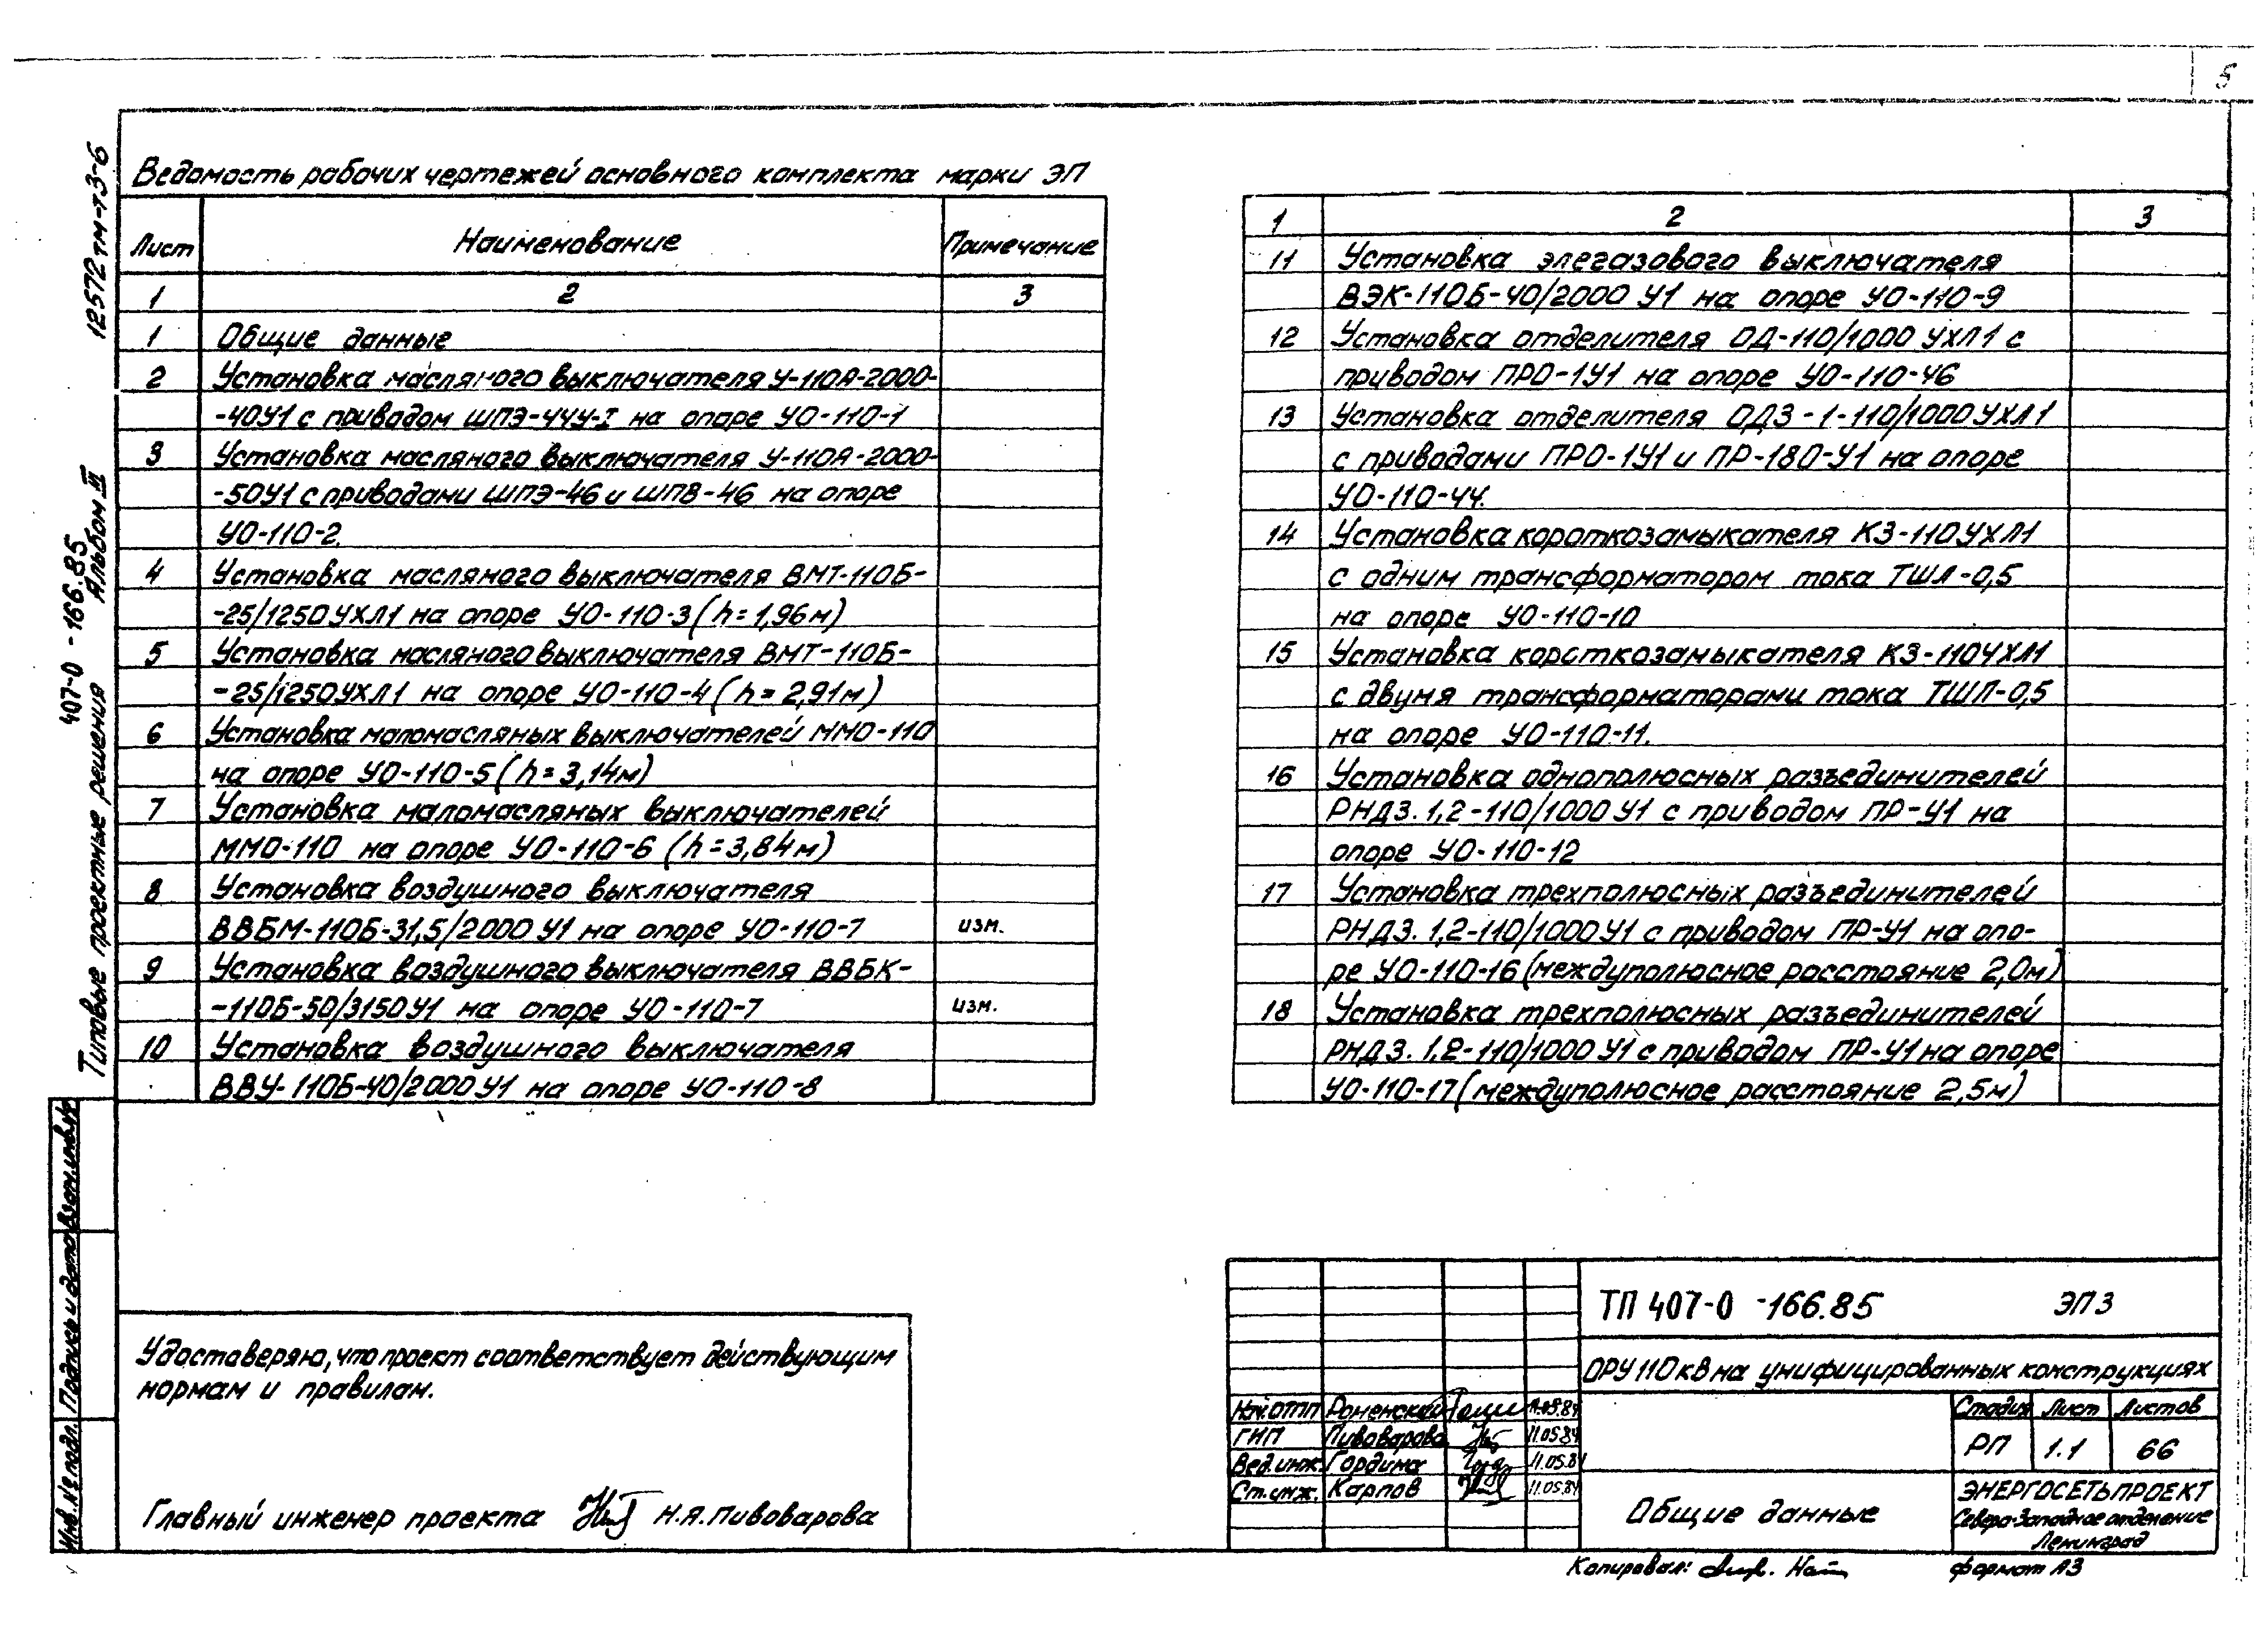 5
12572тм-т3-6
407-0 -166.85
Типовые проектные решения Альбом III
Ведомость рабочих чертежей основного комплекта марки ЭП
Лист Наименование Примечание
1 2 3
1 Общие данные
2 Установка масляного выключателя У-110А-2000-
-40У1 с приводом ШПЭ-44У-I на опоре УО-110-1
3 Установка масляного выключателя У-110А-2000-
-50У1 с приводами ШПЭ-46 и ШПВ-46 на опоре
УО-110-2.
4 Установка масляного выключателя ВМТ-110Б-
-25/1250УХЛ1 на опоре УО-110-3 (h=1,96м)
5 Установка масляного выключателя ВМТ-110Б-
-25/1250УХЛ1 на опоре УО-110-4 (h=2,91м)
6 Установка маломасляных выключателей ММО-110
на опоре УО-110-5 (h=3,14м)
7 Установка маломасляных выключателей
ММО-110 на опоре УО-110-6 (h=3,84м)
8 Установка воздушного выключателя
ВВБМ-110Б-31,5/2000 У1 на опоре УО-110-7 изм.
9 Установка воздушного выключателя ВВБК-
-110Б-50/3150У1 на опоре УО-110-7 изм.
10 Установка воздушного выключателя
ВВУ-110Б-40/2000У1 на опоре УО-110-8
1 2 3
11 Установка элегазового выключателя
ВЭК-110Б-40/2000 У1 на опоре УО-110-9
12 Установка отделителя ОД-110/1000 УХЛ1 с
приводом ПРО-1У1 на опоре УО-110-46
13 Установка отделителя ОДЗ-1-110/1000УХЛ1
с приводами ПРО-1У1 и ПР-180-У1 на опоре
УО-110-44.
14 Установка короткозамыкателя КЗ-110УХЛ1
с одним трансформатором тока ТШЛ-0,5
на опоре УО-110-10
15 Установка короткозамыкателя КЗ-110УХЛ1
с двумя трансформаторами тока ТШЛ-0,5
на опоре УО-110-11.
16 Установка однополюсных разъединителей
РНДЗ.1,2-110/1000 У1 с приводом ПР-У1 на
опоре УО-110-12
17 Установка трехполюсных разъединителей
РНДЗ.1,2-110/1000У1 с приводом ПР-У1 на опо-
ре УО-110-16 (междуполюсное расстояние 2,0м)
18 Установка трехполюсных разъединителей
РНДЗ.1,2-110/1000 У1 с приводом ПР-У1 на опоре
УО-110-17 (междуполюсное расстояние 2,5м)
Инв.№ подл. Подпись и дата Взам.инв.№
Удостоверяю, что проект соответствует действующим
нормам и правилам.
Главный инженер проекта Н.Я.Пивоварова
ТП 407-0 -166.85 ЭП3
ОРУ 110 кВ на унифицированных конструкциях
Нач.ОТП Роменский 11.05.84
ГИП Пивоварова 11.05.84
Вед.инж. Гордина 11.05.84
Ст.инж. Карпов 11.05.84
Стадия Лист Листов
РП 1.1 66
Общие данные
ЭНЕРГОСЕТЬПРОЕКТ
Северо-Западное отделение
Ленинград
Копировал: формат А3